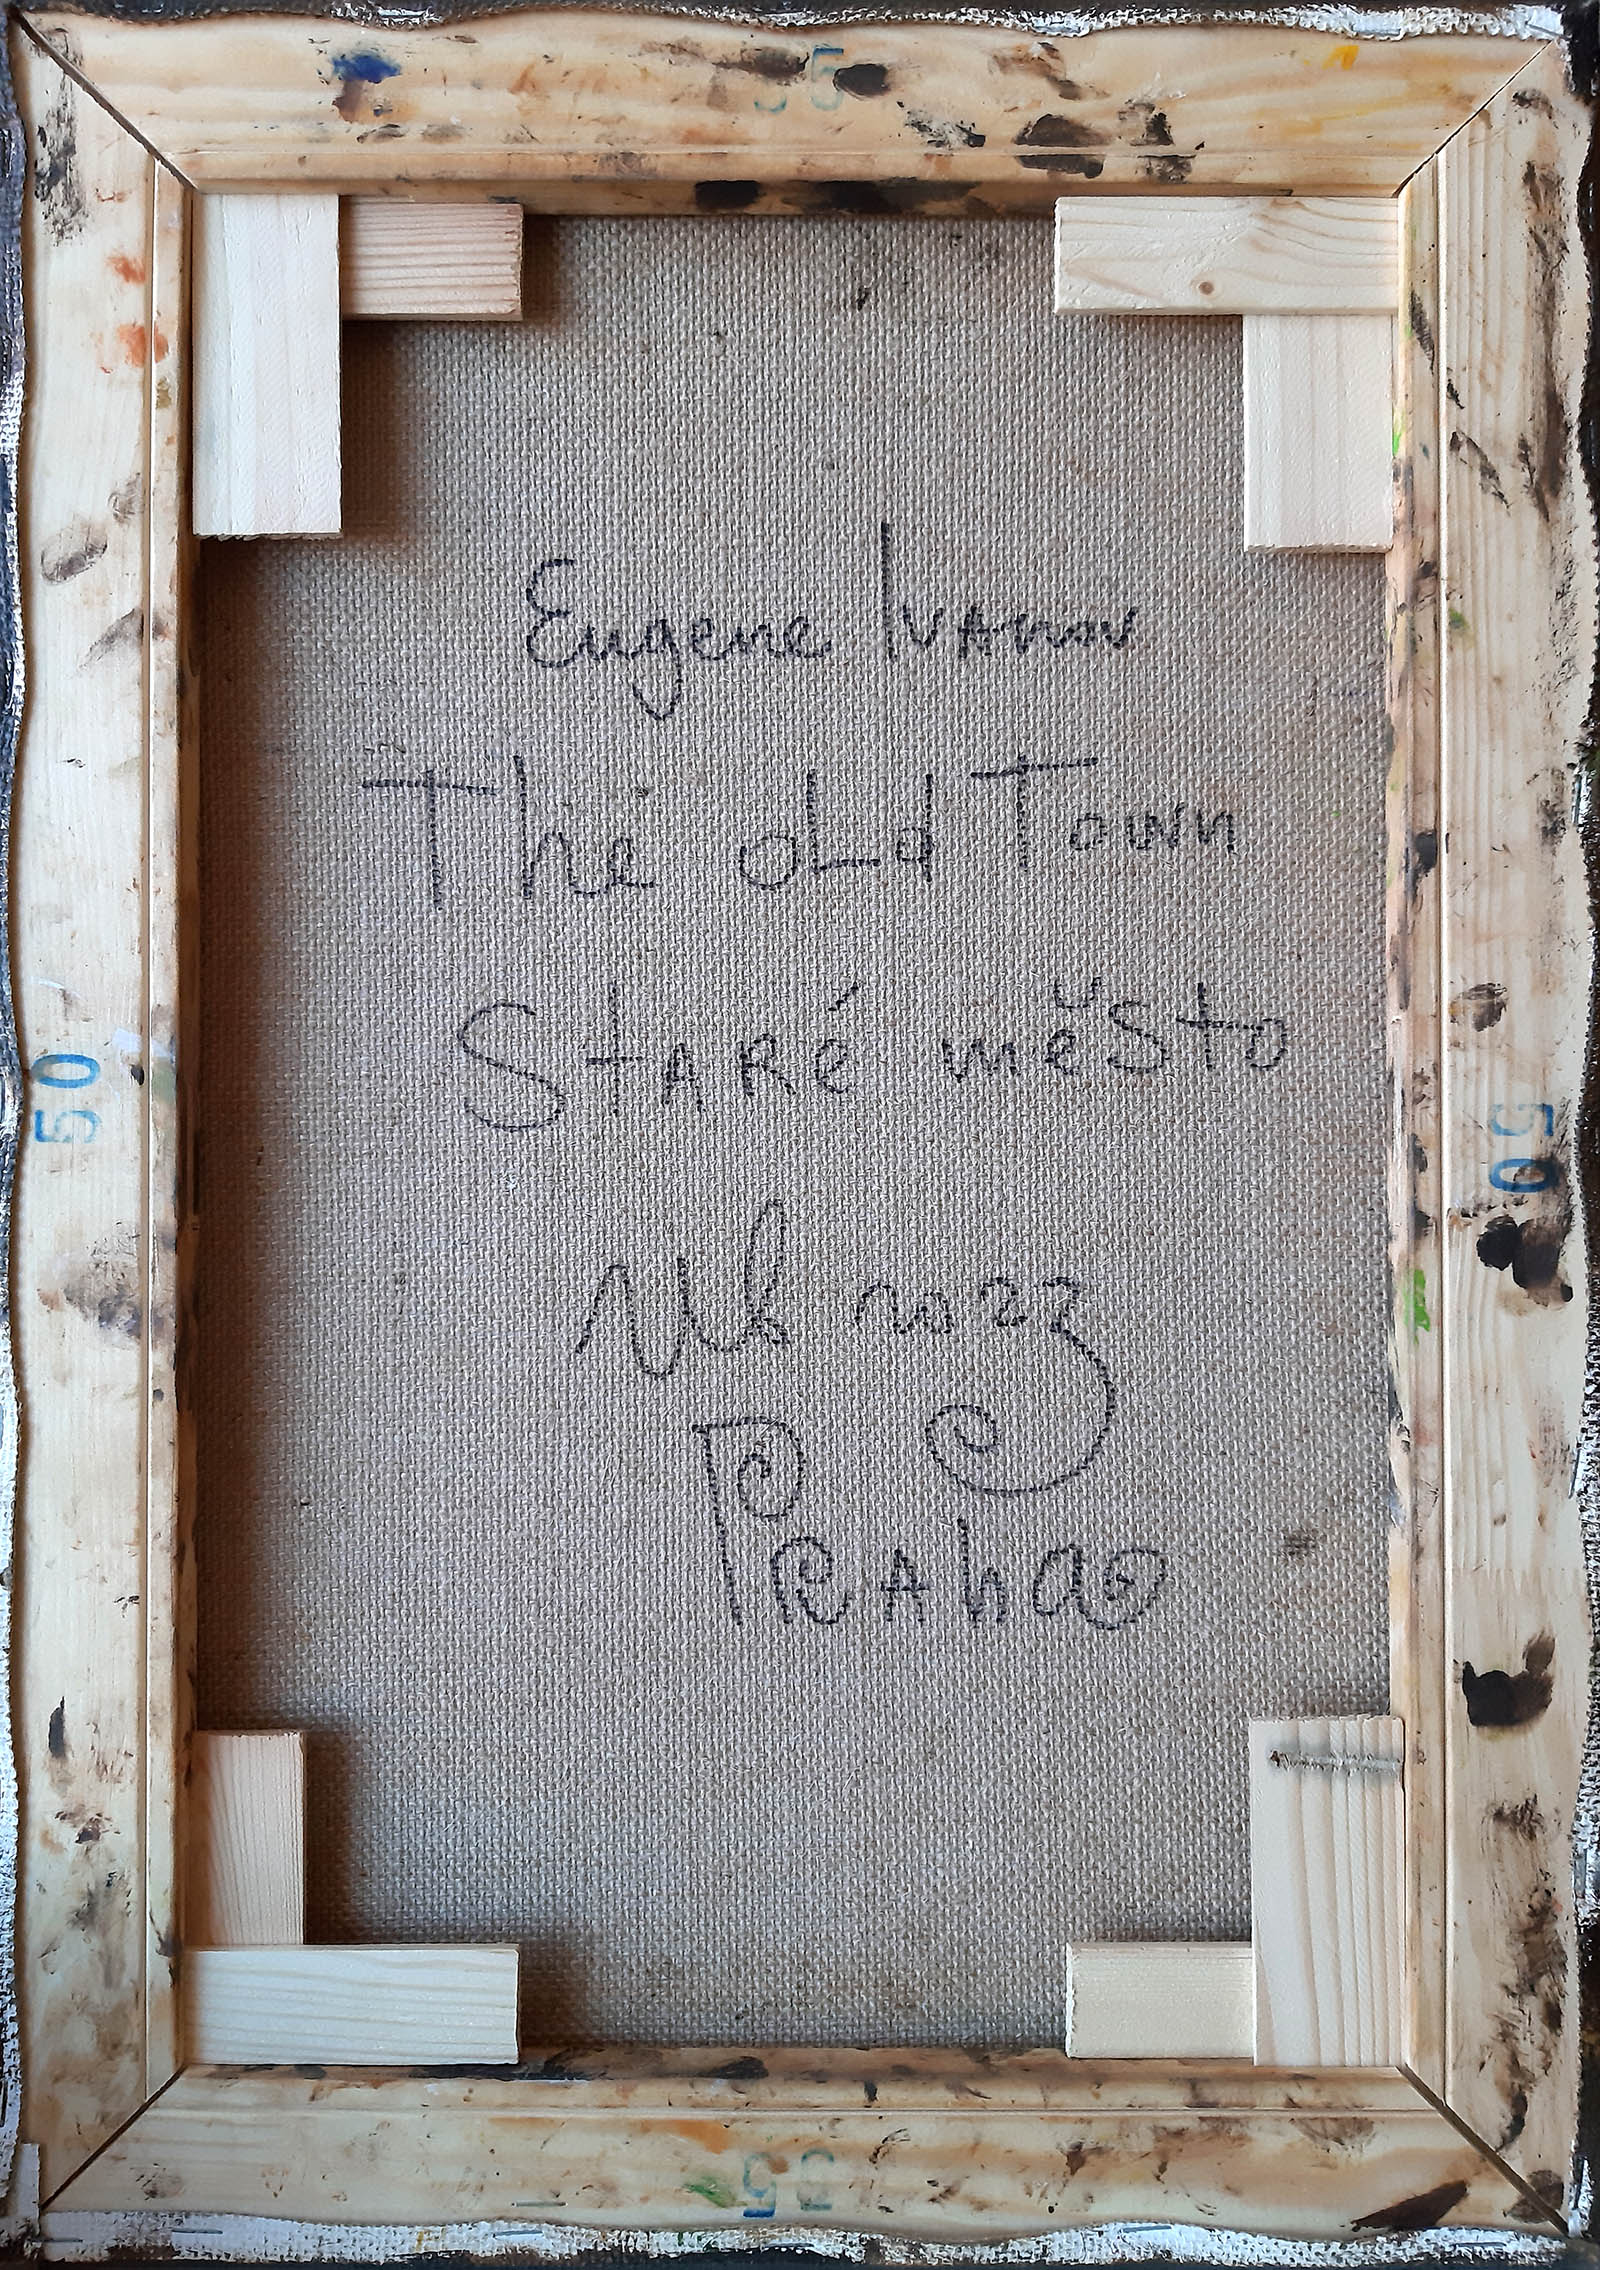 35
Eugene Ivanov
The old Town
Staré město
50
50
Praha
35